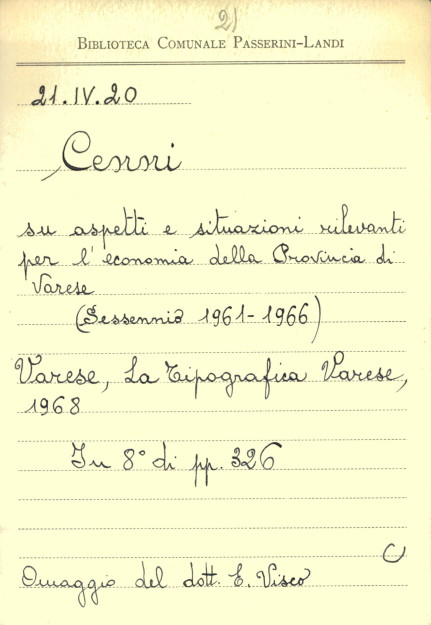 2)
BIBLIOTECA COMUNALE PASSERINI-LANDI
21.IV.20
Cenni
su aspetti e situazioni rilevanti
per l'economia della Provincia di
Varese
(Sessennio 1961-1966)
Varese, La Tipografica Varese,
1968
In 8° di pp. 326
C
Omaggio del dott. E. Visco